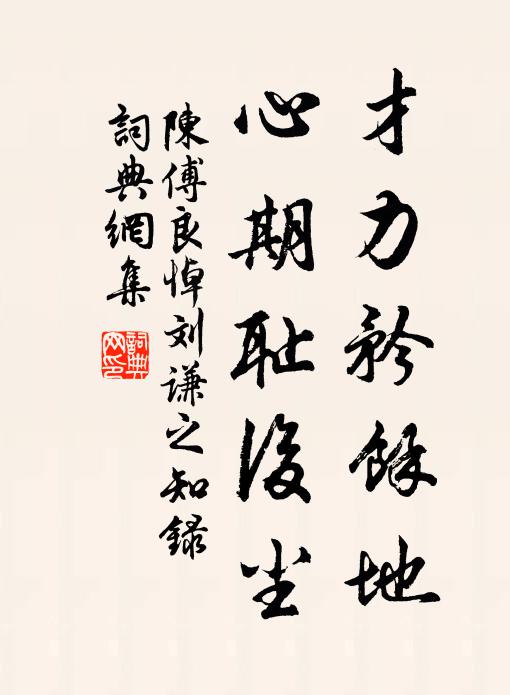 才力矜餘地
心期耻後尘
陳傅良悼刘谦之知録
詞典網集
詞典
网印